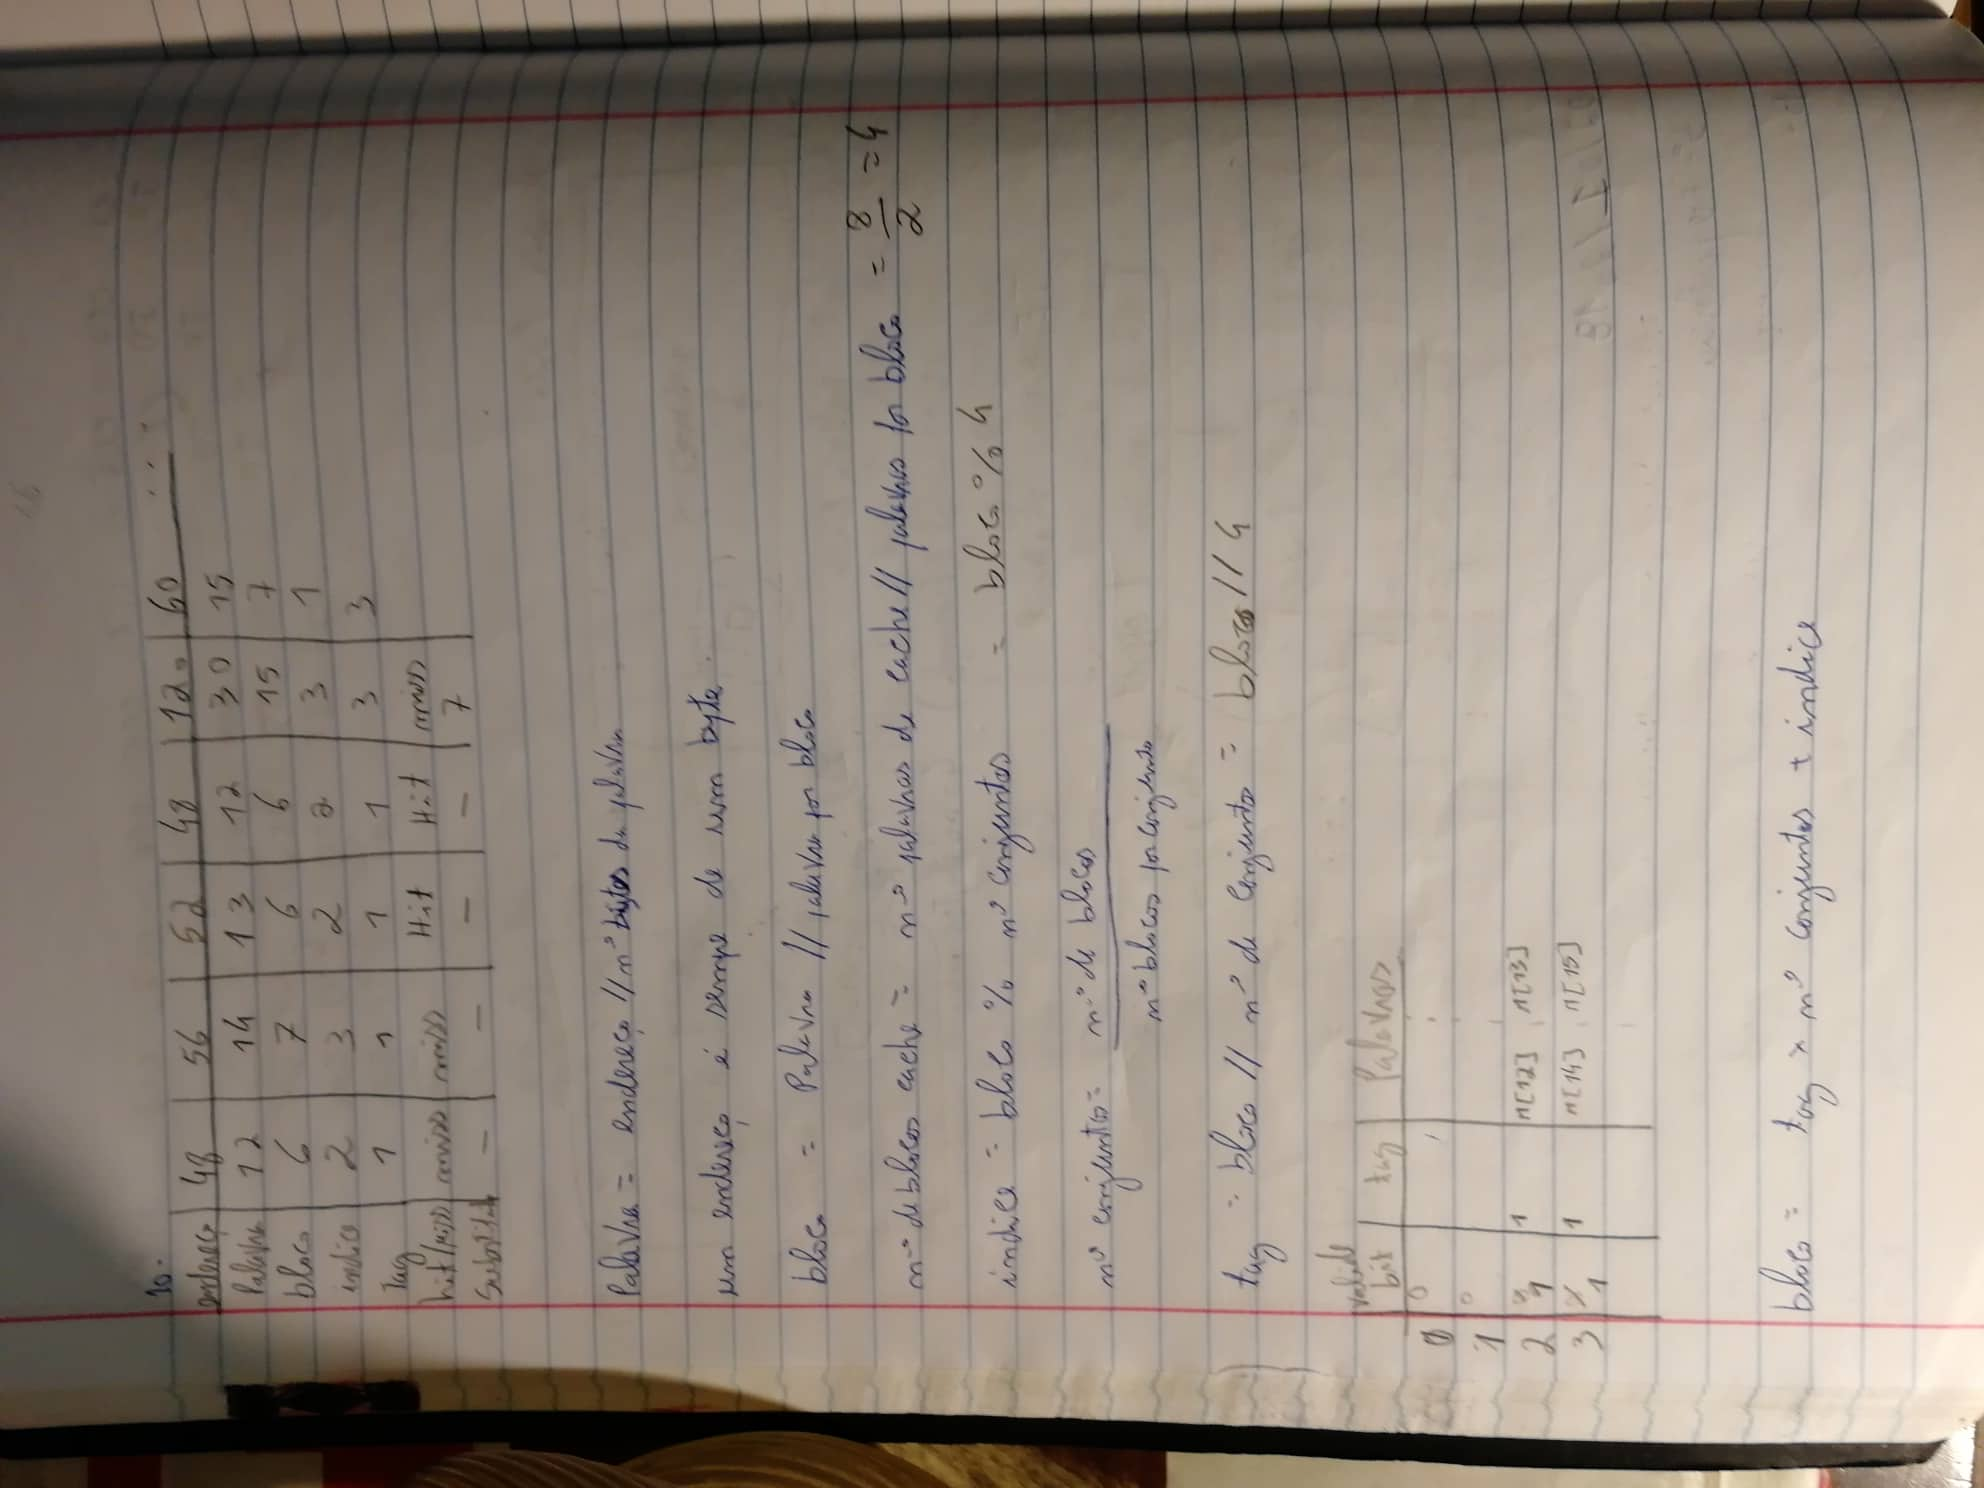 10.
endereço 48 56 52 48 120 60 ...
Palavra 12 14 13 12 30 15
bloco 6 7 6 6 15 7
indice 2 3 2 2 3 1
tag 1 1 1 1 3 3
hit/miss miss miss Hit Hit miss
Substitui - - - - 7
Palavra = endereço // nº bytes da palavra
um endereço é sempre de um byte.
bloco = Palavra // palavra por bloco
nº de blocos cache = nº palavras de cache // palavras por bloco = 8/2 = 4
indice = bloco % nº conjuntos = bloco % 4
nº conjuntos = nº de blocos
nº blocos por conjunto
tag = bloco // nº de conjuntos = blocos // 4
valide
bit tag Palavras
0 0
1 0
2 1 1 M[12] M[13]
3 1 1 M[14] M[15]
bloco = tag x nº conjuntos + indice